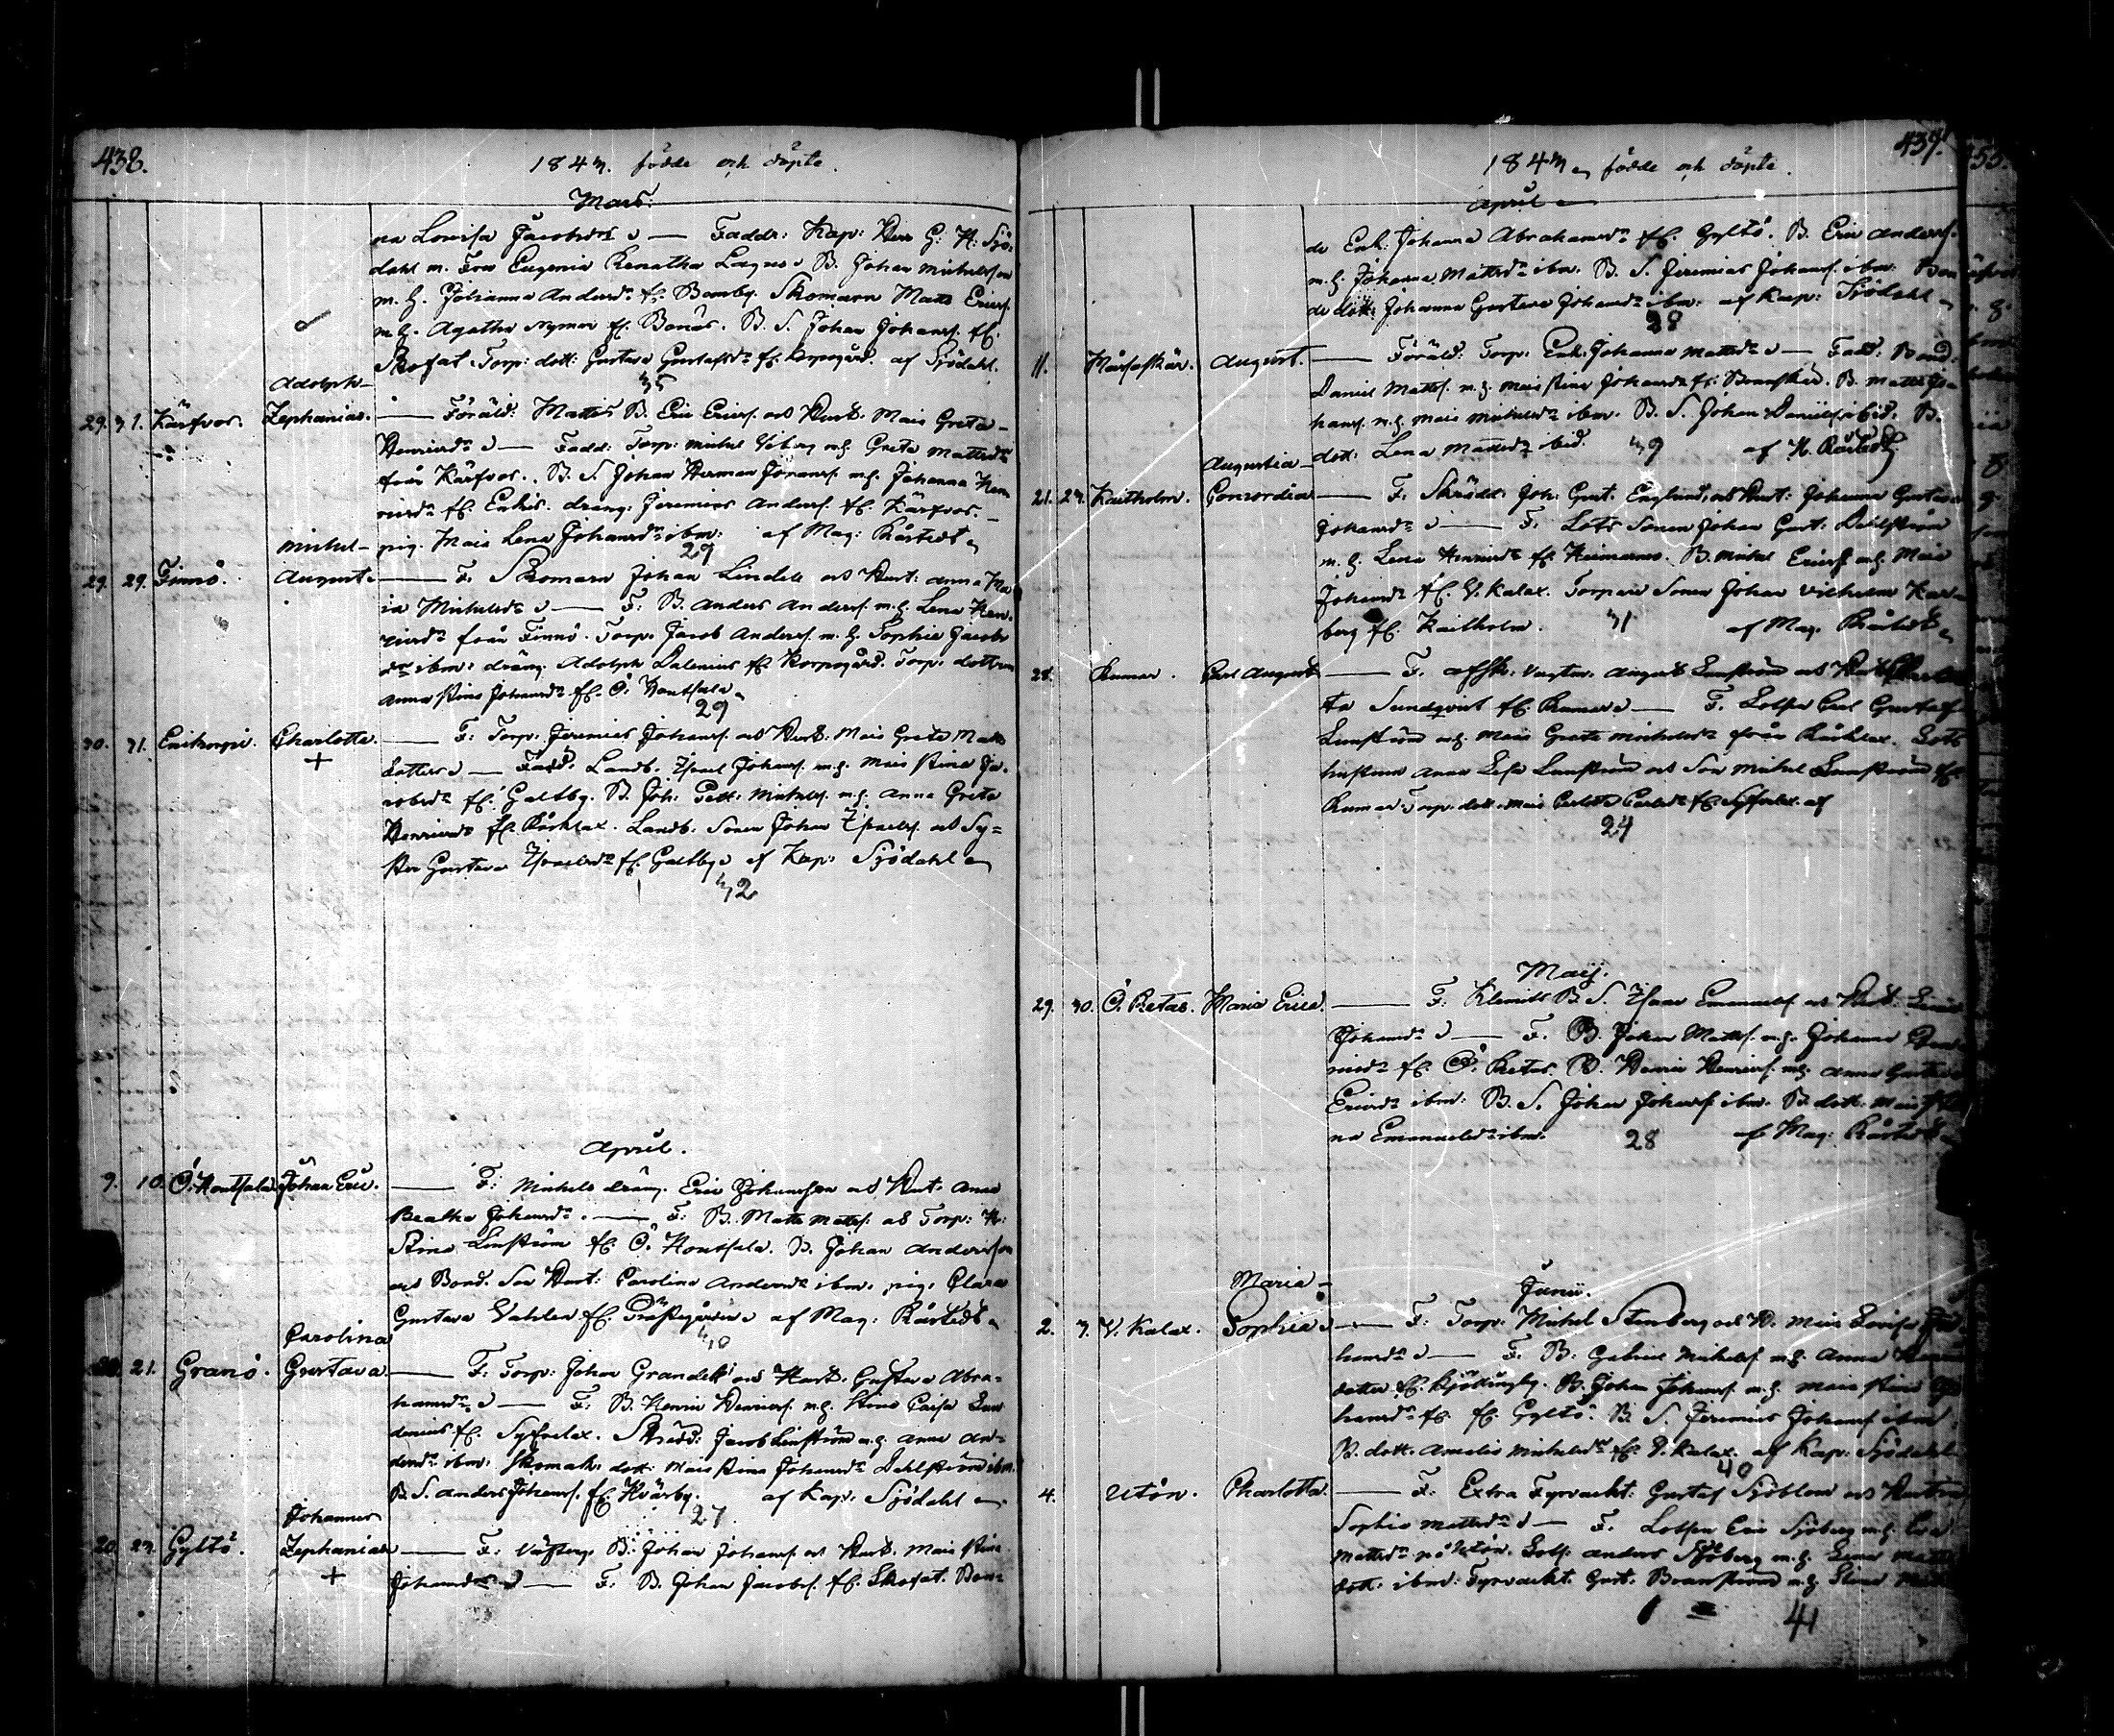 438.
1843. födde och döpte
Mars.
na Lovisa Jacobsdr — Faddr: Kap: Herr G: H: Sjö-
dahl m. Fru Eugenia Renatha Lagus. B. Johan Michelsson
m. h. Johanna Andersdr fr. Bamby. Skomaren Matts Ericss.
m. h. Agatha Nyman fr. Benäs. B. S. Johan Johanss. fr.
Skofat. Torp: dott: Gustava Gustafsdr fr. Korpogård. af Sjödahl.
35
29. 31. Kärfvor. Adolph Zephanias. — Föräld: Matts B. Eric Ericss. och Hust. Maia Greta
Henricsdr — Fadd: Torp: Michel Viberg m.h. Greta Mattsdr
från Kärfvor. B. S. Johan Herman Johanss. m.h. Johanna Hen
ricsdr fr. Enkis. dräng. Jeremias Anderss. fr. Kärfvor.
pig. Maia Lena Johansdr ibm: af Mag: Råstedt
29
29. 29. Finnö. Michel August. — F. Skomaren Johan Lindell och Hust: Anna Ma
ia Michelsdr — F: B. Anders Anderss. m.h. Lena Hen-
ricsdr från Finnö. Torp. Jacob Anderss. m. h. Sophia Jacobs
dr ibm: dräng Adolph Dalenius fr. Korpogård. Torp: dottren
Anna Stina Johansdr fr. Ö. Houtsala.
29
30. 31. Charlotta. + — F: Torp: Jeremias Johanss. och Hust. Maia Greta Matts
dotter — Fadd. Landb. Israel Johanss. m.h. Maia Stina Ja-
cobsdr fr. Galtby. B. Joh: Pett: Michelss. m.h. Anna Greta
Henricsdr fr. Råcklax. Landb. Sonen Johan Israelss. och Sy-
ster Gustava Israelsdr fr. Galtby af Kap: Sjödahl
32
April.
9. 10. Ö. Houtsala. Johan Eric. — F: Michels dräng. Eric Johansson och Hust. Anna
Beatha Johansdr. — F: B. Matts Mattss. och Torp: H:
Stina Lenström fr. Ö. Houtsala. B. Johan Andersson
och Bond. Son Hust: Carolina Andersdr ibm. pig. Clara
Gustava Vahlen fr. Prästgården af Mag: Råstedt
30
20. 21. Granö. Carolina Gustava. — F: Torp: Johan Grandell och Hust. Gustava Abra-
hamsdr — F: B. Henric Henricss. m.h. Stina Caisa Sun
denius fr. Syfvelax. Skrädd: Jacob Lenström m.h. Anna An-
dersdr ibm: Skomak: dott: Maia Stina Johansdr Dahlström ibm.
B. S. Anders Johanss. fr. Kvärby. af Kap. Sjödahl
27
20. 23. Gyltö. Johannes Zephanias + — F: B. Johan Johanss. och Hust. Maia Stina
Johansdr — F: B. Johan Jacobss. fr. Skofat. Bon-
437.
1843. födde och döpte.
April
de Enk: Johanna Abrahamsdr fr. Gyltö. B. Eric Anderss.
m.h. Johanna Mattsdr ibm. B. S. Jeremias Johanss. ibm: Bon
de dott: Johanna Gustava Johansdr ibm: af Kap: Sjödahl
28
11. August. — Föräld: Torp: Enk: Johanna Mattsdr — Fadd: Bond.
Daniel Mattss. m.h. Maia Stina Johansdr fr: Branskär. B. Matts Jo-
hanss. m.h. Maia Michelsdr ibm. B. S. Johan Danielss. ibid. B.
dott: Lena Mattsdr ibid. 39 af H. Råstedt
21. 23. Kaitholm. Augustia Concordia — F. Skrädd: Joh: Gust. Englund, och Hust: Johanna Gustava
Johansdr — F. Lots Sonen Johan Gust: Dahlström
m. h. Lena Henricsdr fr. Heimarnes. B. Michel Ericss m.h. Maia
Johansdr fr. V. Kalax. Torpare Sonen Johan Vilhelm Kar-
berg fr. Kaitholm. 31 af Mag. Råstedt
28. Rumar. Carl August — F. August Lenström och Hust Charlot
ta Sundqvist fr. Rumar — F. Lotsen Carl Gustaf
Lenström m.h. Maia Greta Michelsdr från Råcklax. Lots
hustrun Anna Lisa Lenström och Son Michel Lenström fr.
Rumar. Torp. dott. Maia fr. Syfvelax. af
24
Maij.
29. 30. Ö. Retais. Maria Erica. — F: Klemets B. S. Isaac Emanuelss. och Hust. Lovisa
Johansdr — F. B. Johan Mattss. m.h. Johanna Hen-
ricsdr fr. Ö. Retais. B. Henric Henricss. m.h. Anna Gustava
Ericsdr ibm: B. S. Johan Johanss. ibm. B. dott. Maia Sti
na Emanuelsdr ibm. 28 af Mag: Råstedt
Junii.
2. 3. V. Kalax. Maria Sophia. — F: Torp: Michel Stenberg och H. Maia Lovisa Jo
hansdr — F. B. Gabriel Michelss. m.h. Anna
dotter fr. B. Johan Johanss. m.h. Maia Stina Jo
hansdr fr. fr. Gyltö. B. S. Jeremias Johanss ibm.
B. dott. Amalia Michelsdr fr. V. Kalax. af Kap: Sjödahl
40
4. Utön. Charlotta. — F: Extra Fyrvackt: Gustaf Sjöblom och Hustru
Sophia Mattsdr — F. Lotsen Eric Sjöberg m.h. Eva
Mattsdr på Utön. Lots: Anders Sjöberg m.h. Lena Matts
dott: ibm: Fyrvackt. Gust. Branström m.h. Stina
41